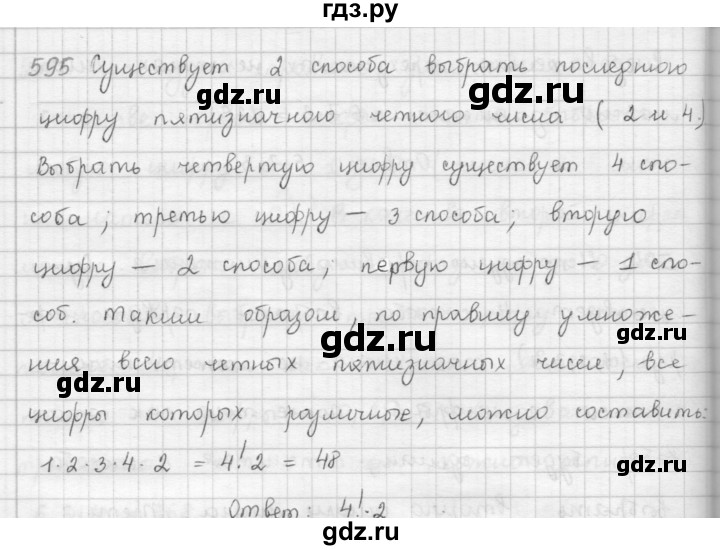 гдз.ру
595 Существует 2 способа выбрать последнюю
gdz.ru gdz.ru
цифру пятизначного четного числа ( 2 и 4.)
Выбрать четвертую цифру существует 4 спо-
соба; третью цифру — 3 способа; вторую
gdz.ru
цифру — 2 способа; первую цифру — 1 спо-
соб. Таким образом, по правилу умноже-
gdz.ru
ния всего четных пятизначных чисел, все
gdz.ru gdz.ru
цифры которых различные, можно составить:
1·2·3·4·2 = 4!·2 = 48
gdz.ru
Ответ: 4!·2
gdz.ru